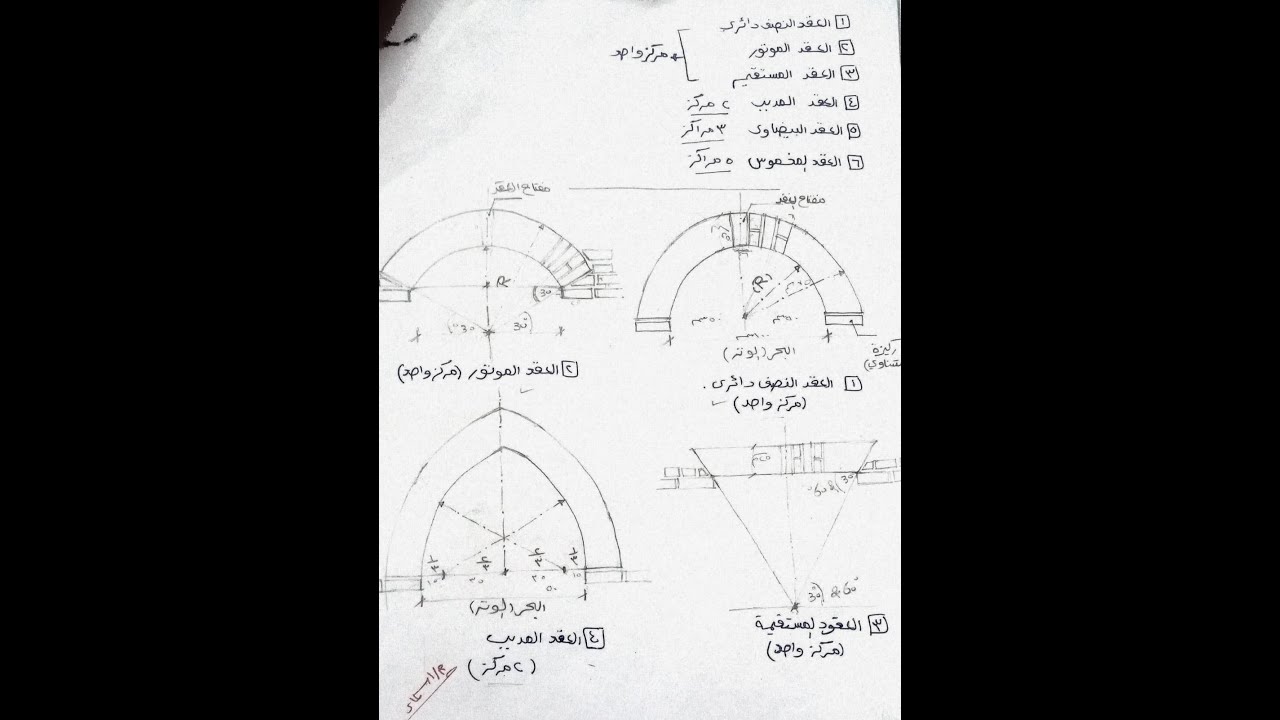 ١ العقد النصف دائرى
٢ العقد الموتور
٣ العقد المستقيم
مركز واحد
٤ العقد المدبب ٢ مركز
٥ العقد البيضاوى ٣ مراكز
٦ العقد المخموس ٥ مراكز
مفتاح العقد
R
30
30° 30°
٢ العقد الموتور (مركز واحد)
مفتاح العقد
٢٥
(R)
٥٠سم ٥٠سم
١٠٠سم
البحر (الوتر)
ركيزة
١ العقد النصف دائرى.
(مركز واحد)
١/٣ ٢/٣ ٢/٣ ١/٣
١٠ ٢٠ ٢٠ ١٠
٥٠
البحر (الوتر)
٤ العقد المدبب
(٢ مركز)
30° & 60°
30° & 60°
٣ العقود المستقيمة
(مركز واحد)